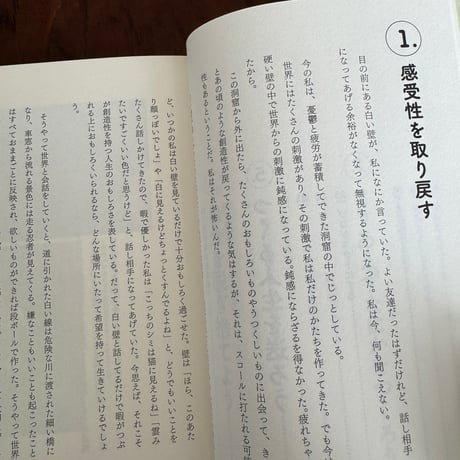 1.
感受性を取り戻す
目の前にある白い壁が、私になにか言っていた。よい友達だったはずだけれど、話し相手
になってあげる余裕がなくなって無視するようになった。私は今、何も聞こえない。
今の私は、憂鬱と疲労が蓄積してできた洞窟の中でじっとしている。
世界にはたくさんの刺激があり、その刺激で私は私だけのかたちを作ってきた。でも今は
硬い壁の中で世界からの刺激に鈍感になっている。鈍感にならざるを得なかった。疲れちゃ
たから。
この洞窟から外に出たら、たくさんのおもしろいものやうつくしいものに出会って、き
とあの頃のような創造性が戻ってくるような気はするが、それは、スコールに打たれる可能
性もあるということだ。私はそれが怖いんだ。
ど、いつかの私は白い壁を見ているだけで十分おもしろく過ごせた。壁は「ほら、このあた
り顔っぽいでしょ」や「白に見えるけどちょっとくすんでるよね」と、どうでもいいことを
たくさん話しかけてきたので、暇で優しかった私は「こっちのシミは猫に見えるね」「雲み
たいですごくいい色だと思うけど」と、話し相手になってあげていた。今思えば、それこそ
が創造性を持つ人生のおもしろさを表している。だって、白い壁と話してるだけで暇がつぶ
れる上におもしろくいられるなら、どんな場所にいたって希望を持って生きていけるでしょ
う。
そうやって世界と会話をしていくと、道に引かれた白い線は危険な川に渡された細い橋に
なり、車窓から流れる景色には走る忍者が見えてくる。嫌なこともいいことも起こったこと
はすべておままごとに反映され、欲しいものができれば段ボールで作った。そうやって世界